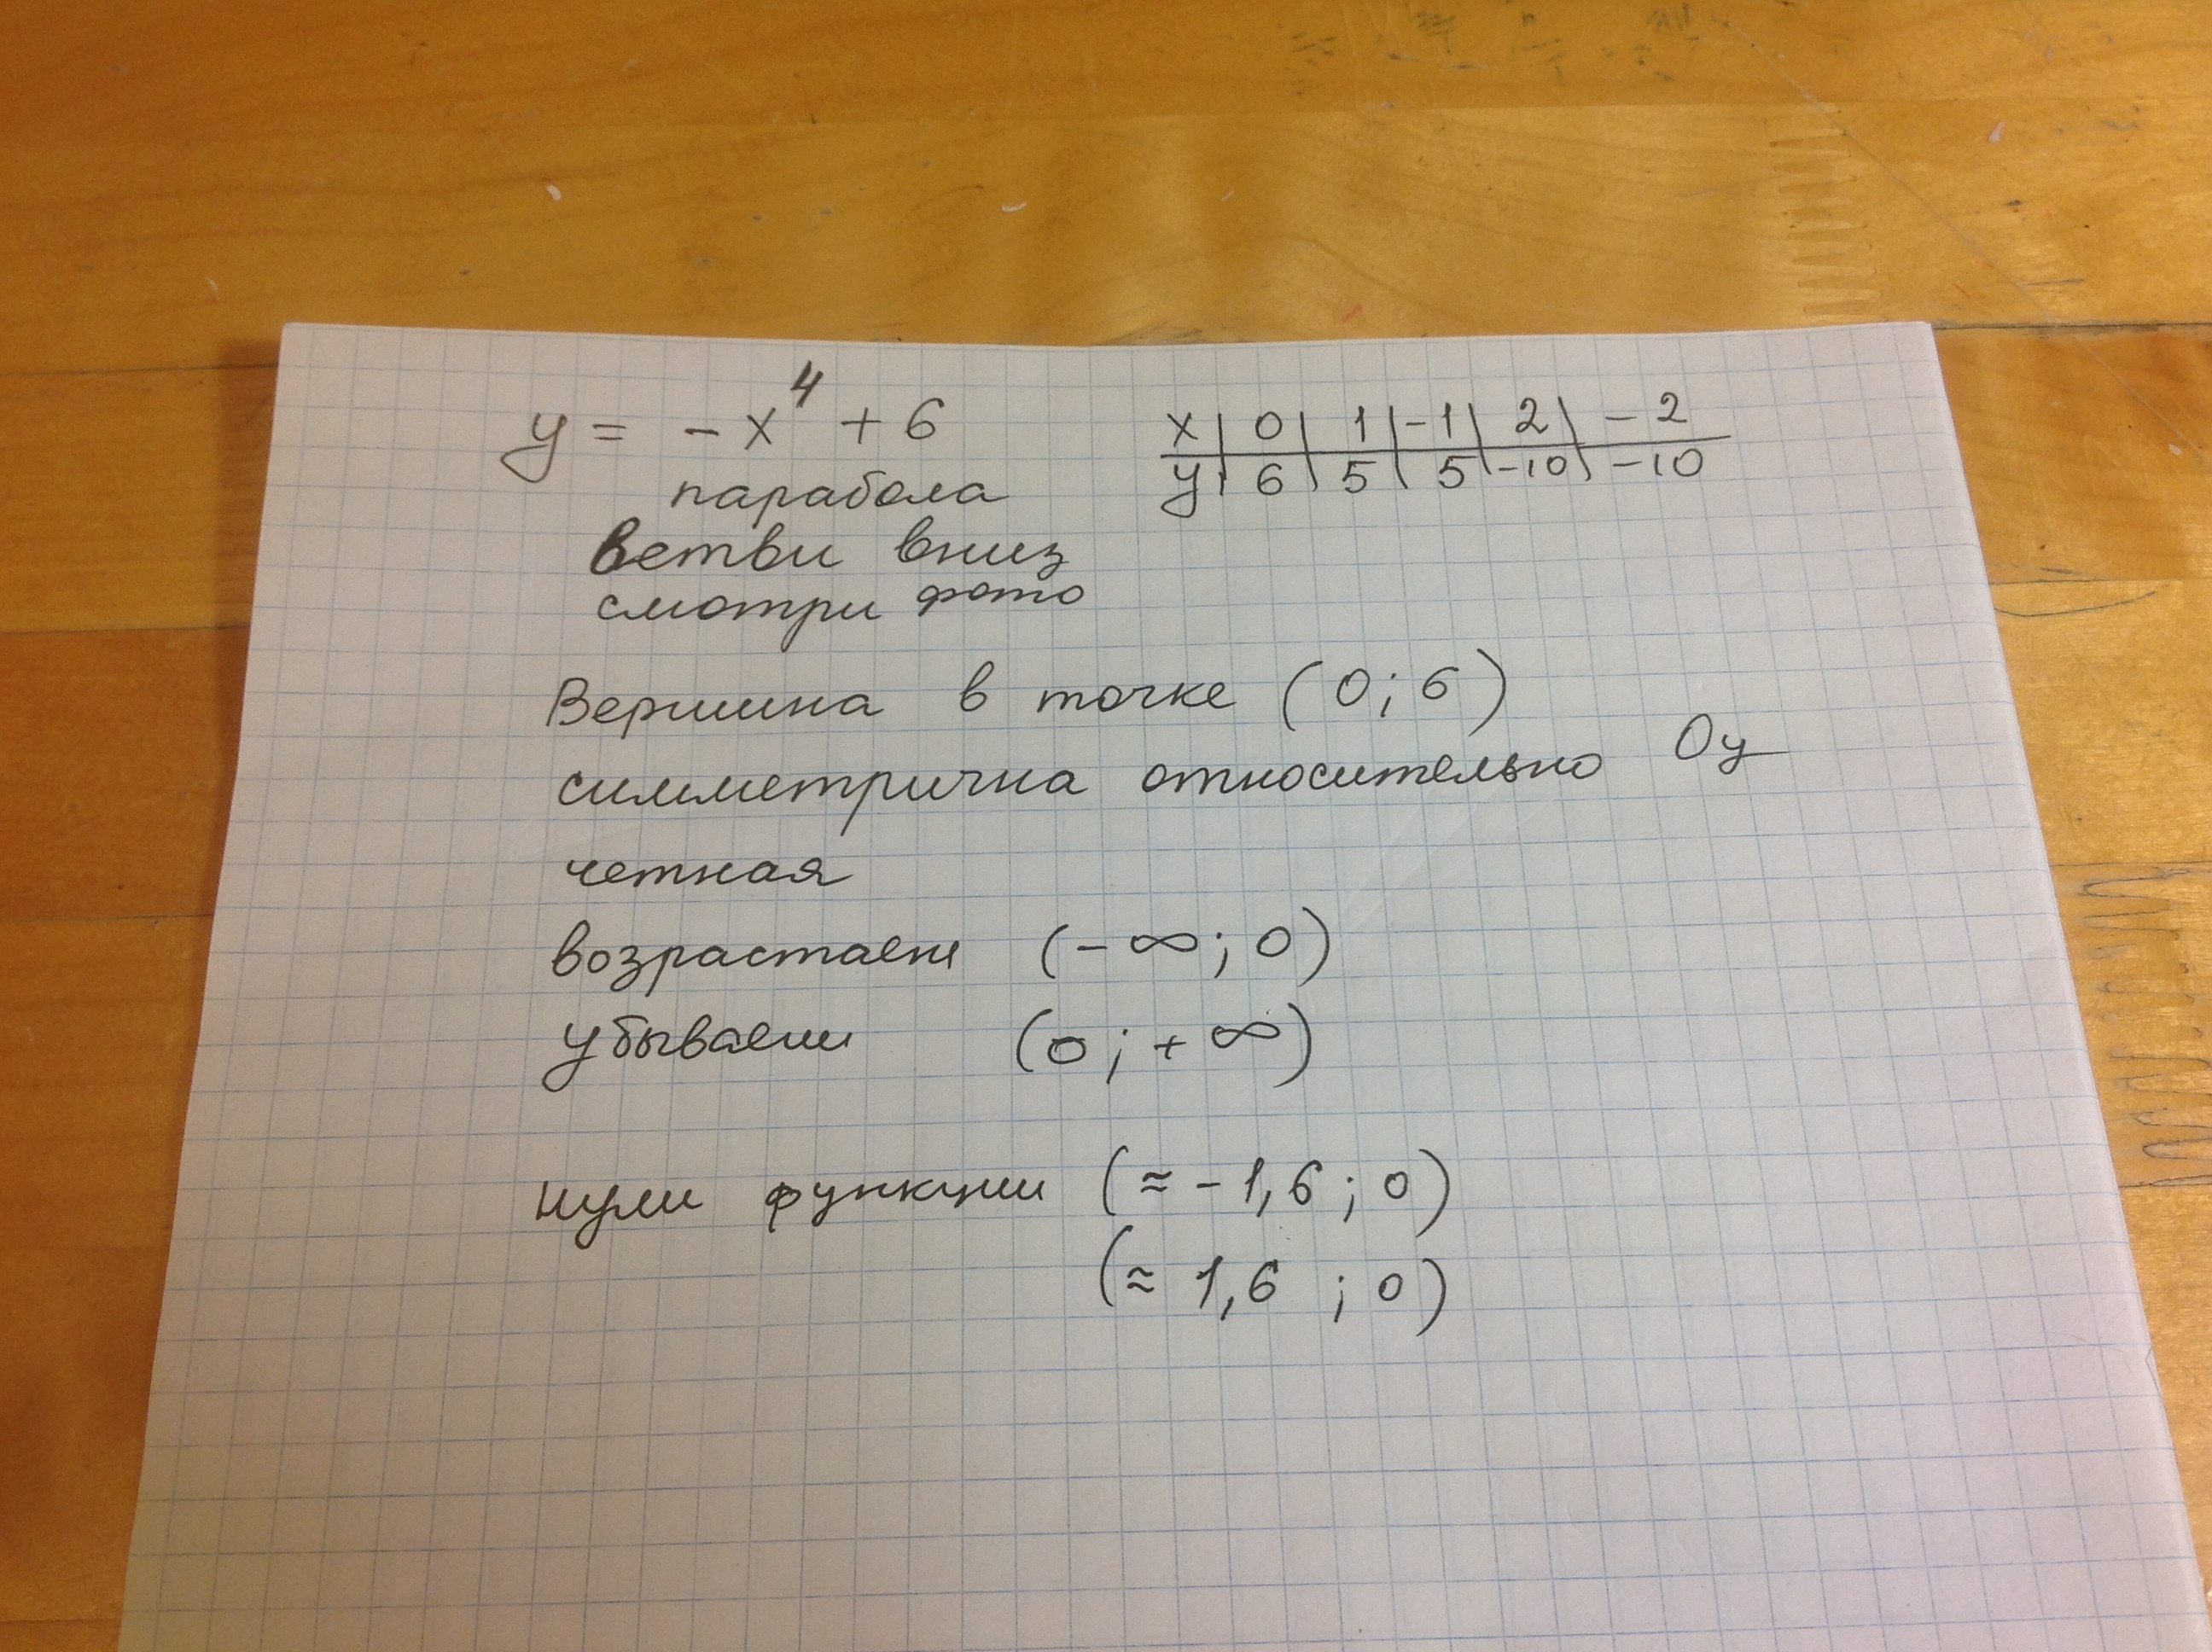 y = -x⁴ + 6
x | 0 | 1 | -1 | 2 | -2
y | 6 | 5 | 5 | -10 | -10
парабола
ветви вниз
смотри фото
Вершина в точке (0; 6)
симметрична относительно Oy
четная
возрастает (-∞; 0)
убывает (0; +∞)
нули функции (≈ -1,6 ; 0)
(≈ 1,6 ; 0)